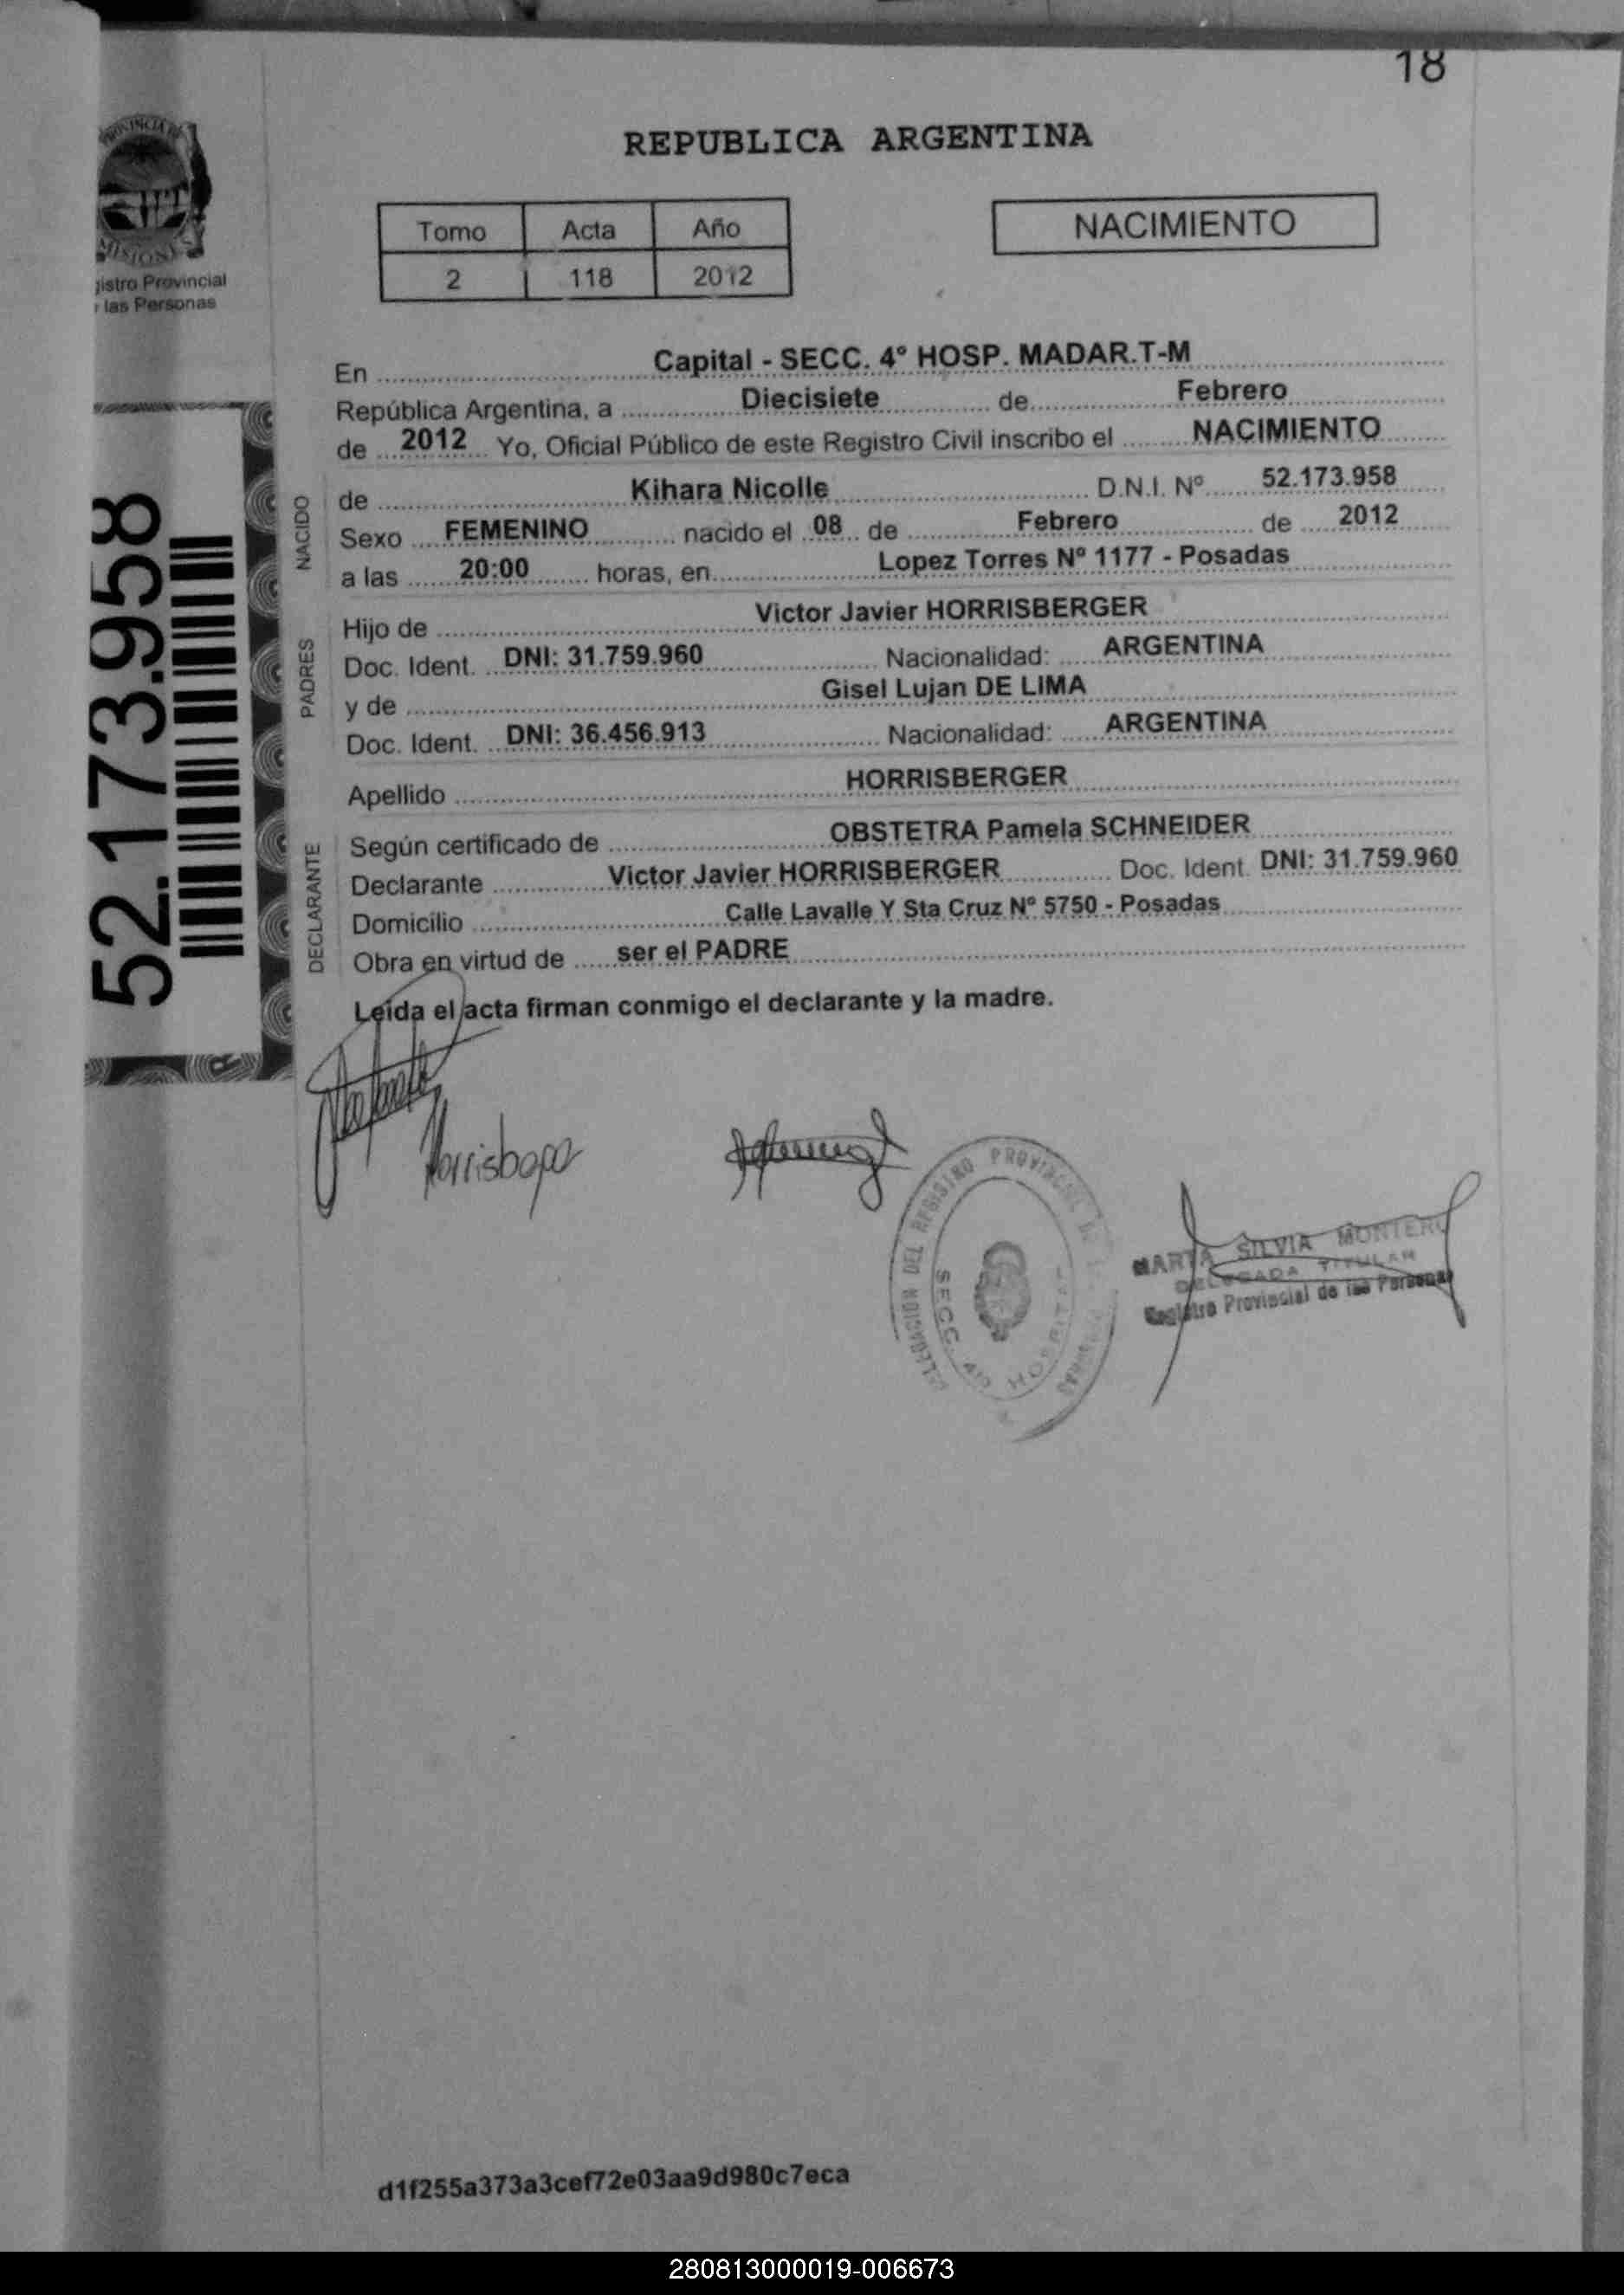 18
PROVINCIA DE
MISIONES
gistro Provincial
las Personas
REPUBLICA ARGENTINA
Tomo Acta Año
2 118 2012
NACIMIENTO
En Capital - SECC. 4° HOSP. MADAR.T-M
República Argentina, a Diecisiete de Febrero
de 2012 Yo, Oficial Público de este Registro Civil inscribo el NACIMIENTO
NACIDO
de Kihara Nicolle D.N.I. Nº 52.173.958
Sexo FEMENINO nacido el 08 de Febrero de 2012
a las 20:00 horas, en Lopez Torres Nº 1177 - Posadas
PADRES
Hijo de Victor Javier HORRISBERGER
Doc. Ident. DNI: 31.759.960 Nacionalidad: ARGENTINA
y de Gisel Lujan DE LIMA
Doc. Ident. DNI: 36.456.913 Nacionalidad: ARGENTINA
Apellido HORRISBERGER
DECLARANTE
Según certificado de OBSTETRA Pamela SCHNEIDER
Declarante Victor Javier HORRISBERGER Doc. Ident. DNI: 31.759.960
Domicilio Calle Lavalle Y Sta Cruz Nº 5750 - Posadas
Obra en virtud de ser el PADRE
Leída el acta firman conmigo el declarante y la madre.
52.173.958
R
DELEGACION DEL REGISTRO PROVINCIAL
SECC. 4º HOSPITAL
MARTA SILVIA MONTERO
DELEGADA TITULAR
Registro Provincial de las Personas
d1f255a373a3cef72e03aa9d980c7eca
280813000019-006673